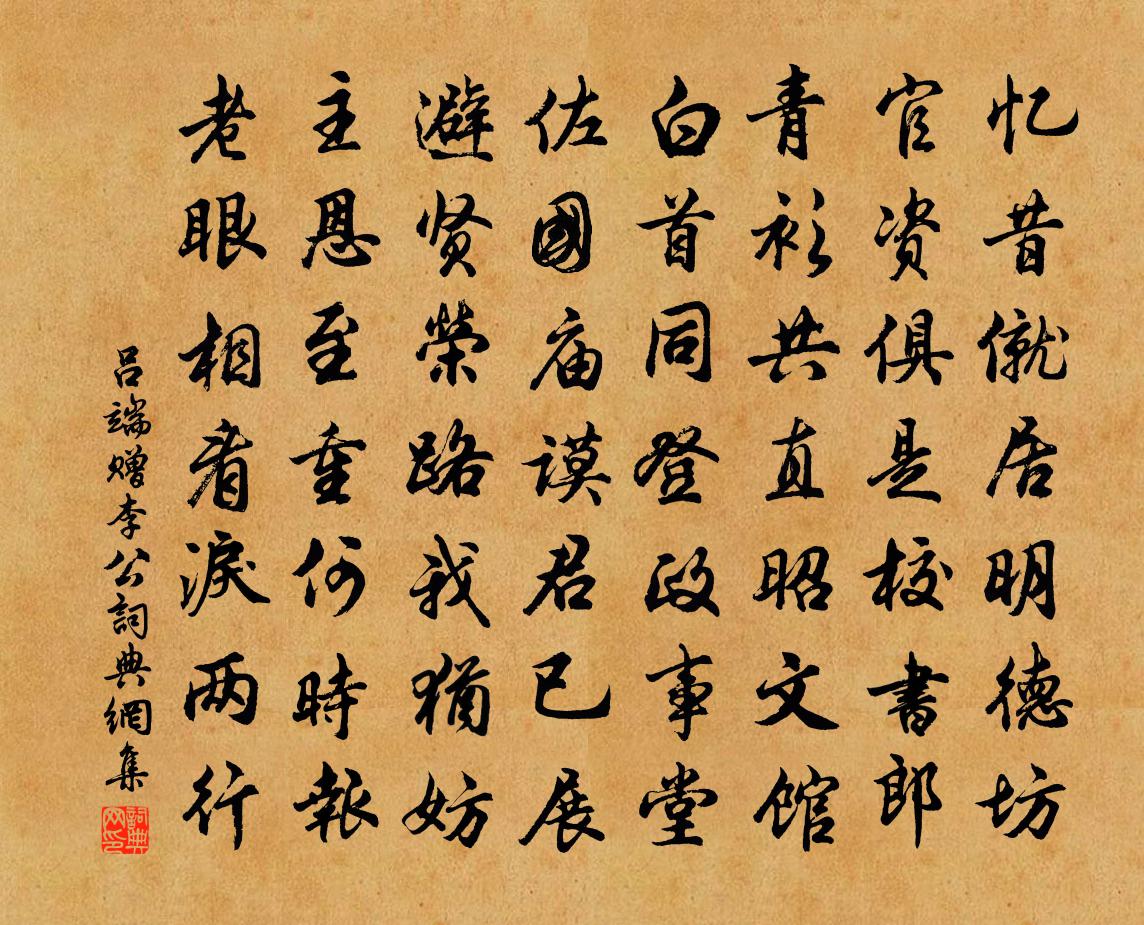 忆昔僦居明德坊
官资俱是校書郎
青衫共直昭文馆
白首同登政事堂
佐國庙谟君已展
避贤榮路我猶妨
主恩至重何時報
老眼相看淚两行
吕端赠李公詞典網集
詞典网印